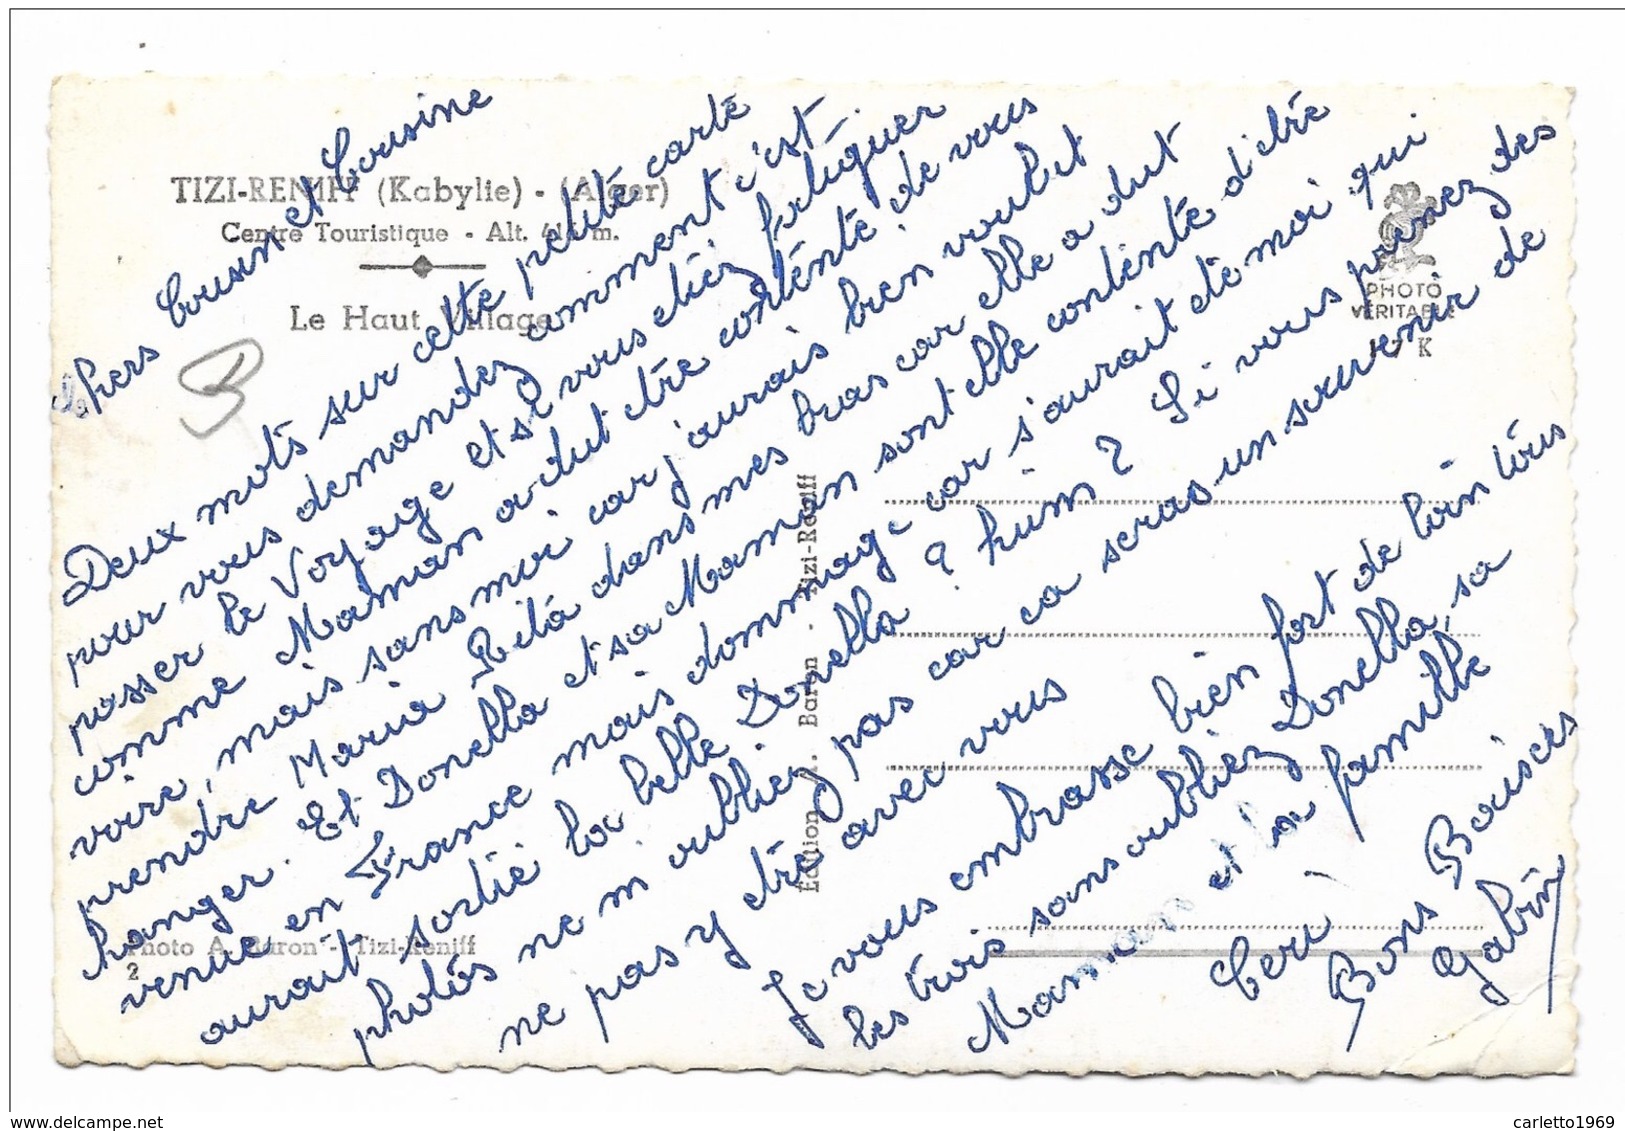 TIZI-RENIFF (Kabylie) - (Alger)
Centre Touristique - Alt. m.
Le Haut Village
PHOTO
VÉRITABLE
K
Édition A. Baron - Tizi-Reniff
Photo A. Baron - Tizi-Reniff
2
Chers Cousin et Cousine
Deux mots sur cette petite carte
pour vous demandez comment c'est
passer le Voyage et si vous étiez fatiguer
comme Maman a dut être contente de vous
voire, mais sans moi car j'aurais bien voulut
prendre Maria Rita dans mes bras car elle a dut
hanger. Et Donella et sa Maman sont elle contente d'être
venue en France mais dommage car s'aurait été moi qui
aurait sortie la belle Donella ? hum ? Si vous prenez des
photos ne m'oubliez pas car ca seras un souvenir de
ne pas y être avec vous
Je vous embrasse bien fort de loin tous
les trois sans oubliez Donella, sa
Maman et la famille
Ceri
Bons Baisers
Gabin
delcampe.net
carletto1969